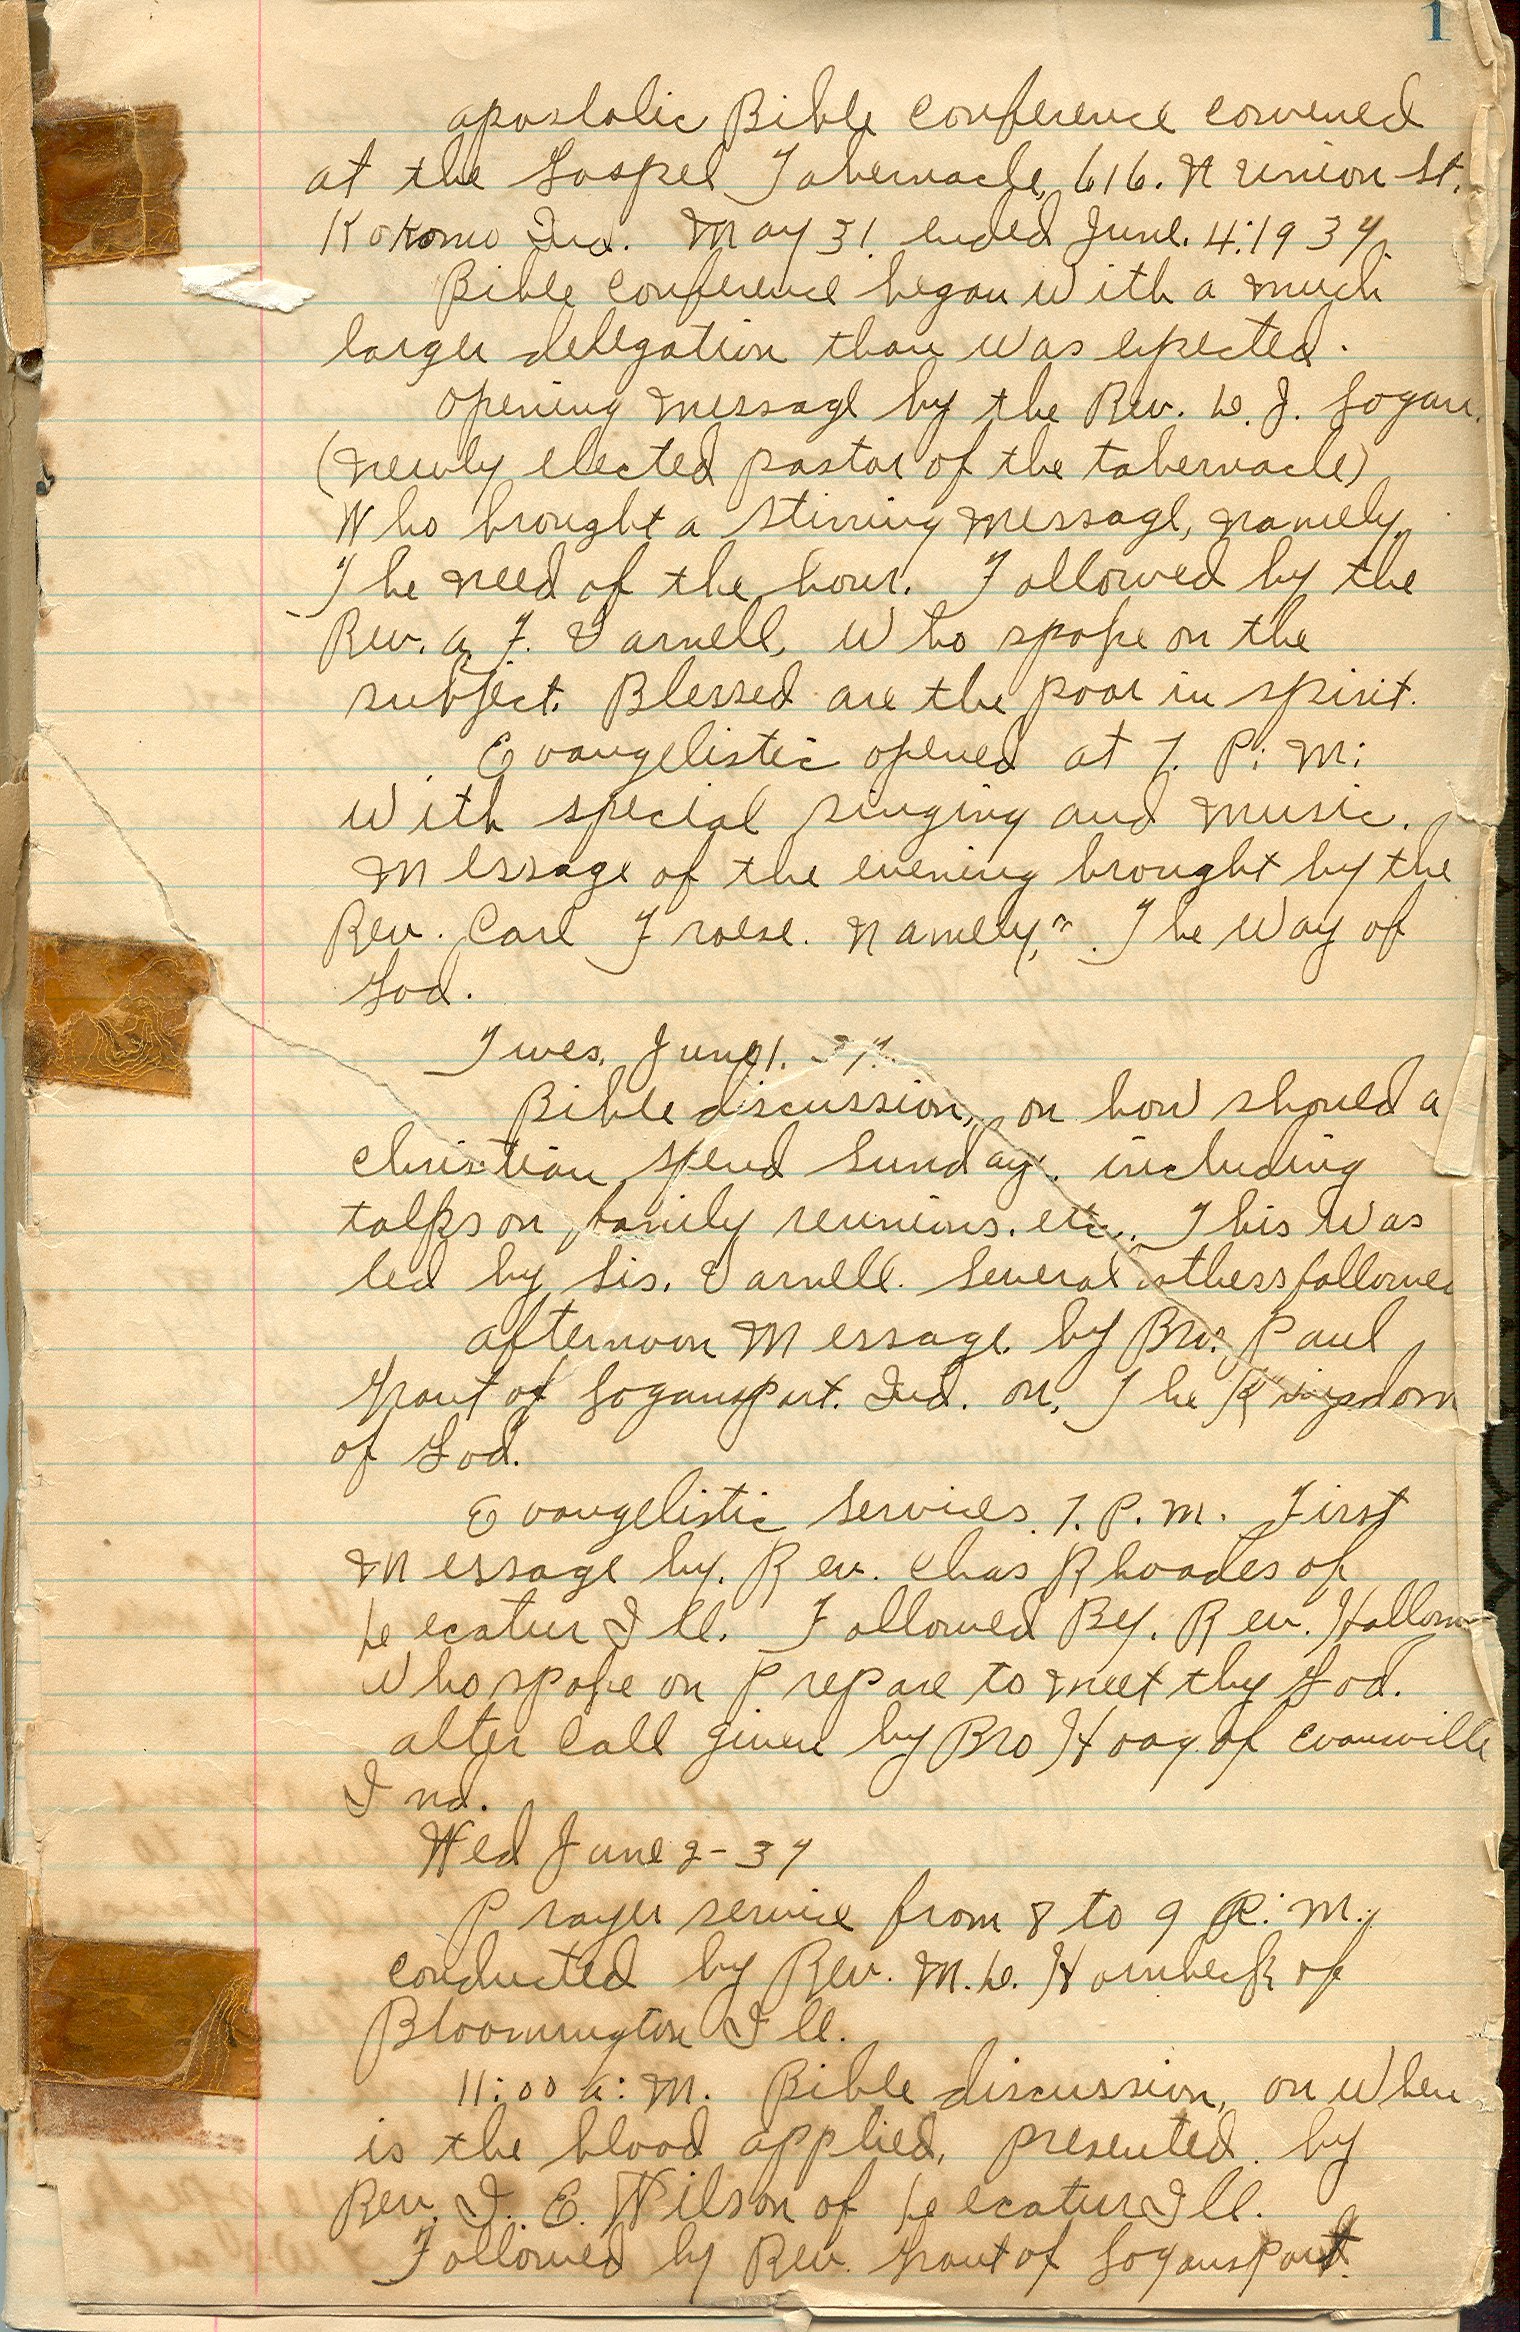 1
apostolic Bible Conference convened
at the Gospel Tabernacle, 616. N Union St.
Kokomo Ind. May 31. ended June. 4:1937.
Bible Conference began With a much
larger delegation than was expected.
Opening message by the Rev. D. J. Logan.
(newly elected pastor of the tabernacle)
Who brought a stirring message, namely,
The need of the hour. Followed by the
Rev. a. F. Varnell, Who spoke on the
subject. Blessed are the poor in spirit.
Evangelistic opened at 7. P: M:
With special singing and music.
Message of the evening brought by the
Rev. Carl Froese. Namely, The Way of
God.
Tues, June 1. 37.
Bible discussion, on how should a
christian spend Sunday. including
talks on family reunions. etc. This was
led by Sis. Varnell. Several others followed
afternoon Message by Bro. Paul
Grant of Logansport. Ind. on, The Kingdom
of God.
Evangelistic Services. 7. P. M. First
Message by. Rev. Chas Rhoades of
Decatur Ill. Followed By. Rev. Hallow
Who spoke on Prepare to meet thy God.
alter Call given by Bro Hoag of Evansville
Ind.
Wed June 2-37
Prayer service from 8 to 9 P: M.;
conducted by Rev. M. D. Hornbeck of
Bloomington Ill.
11:00 a: M. Bible discussion, on When
is the blood applied, presented by
Rev. I. E. Wilson of Decatur Ill.
Followed by Rev. Grant of Logansport.